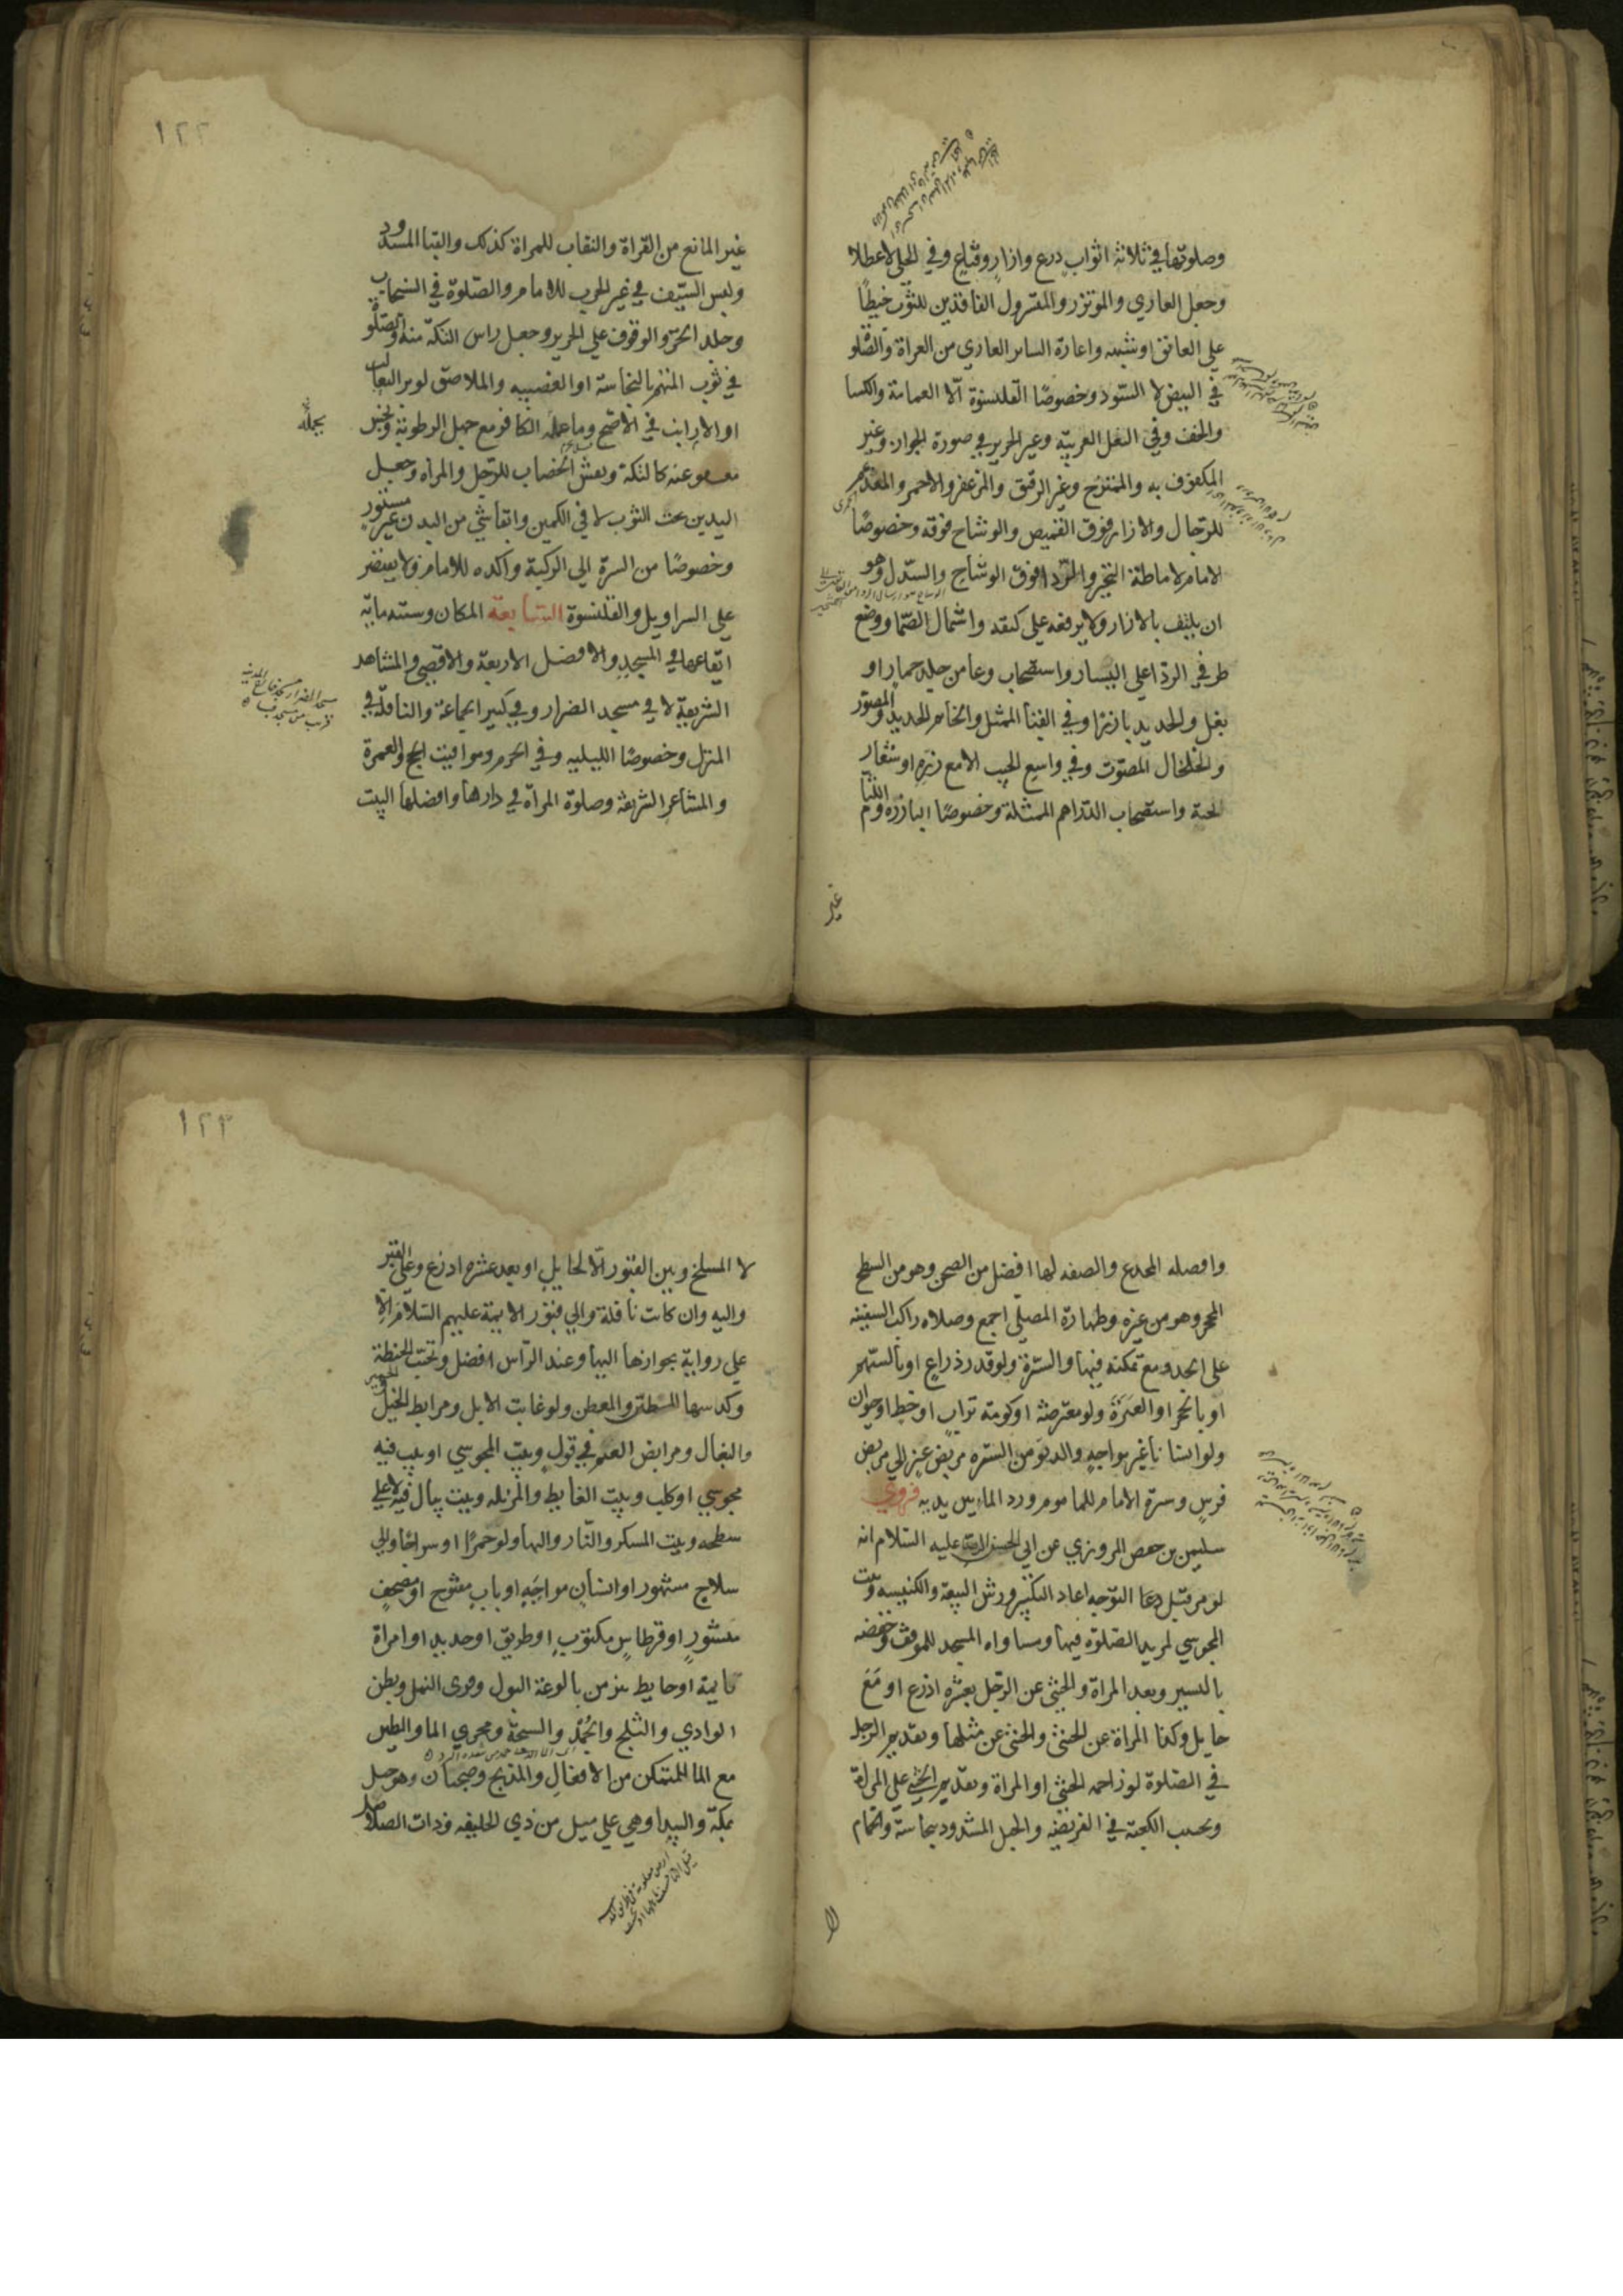 وصلوتها في ثلاثة اثواب درع وازار وقناع وفي الحلي لا عطلا
وجعل العاري والموتزر والمتسرول الفاقدين للثوب خيطا
على العاتق او شبهه واعارة الساتر العاري من العراة والصلو
في البيض لا السود وخصوصا القلنسوة الا العمامة والكسا
والخف وفي النعل العربية وغير الحرير في صورة الجواز وغير
المكفوف به والممتزج وغير الرقيق والمزعفر والاحمر والمعصفر
للرجال والازار فوق القميص والوشاح فوقه وخصوصا
الامام لاماطة التجبر والردا فوق الوشاح والسدل وهو
ان يلتف بالازار ولا يرفعه على كتفه واشتمال الصما ووضع
طرفي الردا على اليسار واستصحاب وعا من جلد حمار او
بغل والحديد بارزا وفي القبا الممثل والخاتم الحديد والمصور
والخلخال المصوت وفي واسع الجيب الا مع زره او شعار
لحية واستصحاب الدراهم الممثلة وخصوصا البارزة واللثام
غير
١٢٢
غير المانع من القراة والنقاب للمراة كذلك والقبا المشدود
ولبس السيف في غير الحرب للامام والصلوة في السنجاب
وجلد الخز والوقوف على الحرير وجعل راس التكة منه والصلو
في ثوب المتهم بالنجاسة او الغصبيه والملاصق لوبر الثعالب
او الارانب في الاصح وما عمله الكافر مع جهل الرطوبة ونجس
معفو عنه كالتكة وبعض الخضاب للرجل والمراه وجعل
اليدين تحت الثوب لا في الكمين وابقا شي من البدن غير مستور
وخصوصا من السرة الى الركبة واكده للامام ولا يقتصر
على السراويل والقلنسوة السابعة المكان وسننه مايه
ايقاعها في المسجد والافضل الاربعة والاقصى والمشاهد
الشريفة لا في مسجد الضرار وفي كبير الجماعة والنافلة في
المنزل وخصوصا الليليه وفي الحرم ومواقيت الحج والعمرة
والمشاعر الشريفة وصلوة المراة في دارها وافضلها البيت
وافضله المخدع والصفه لها افضل من الصحن وهو من السطح
المحجر وهو من غيره وطهارة المصلى اجمع وصلاه راكب السفينه
على الجدد مع تمكنه فيها والسترة ولو قدر ذراع او بالسهم
او بالحجر او العنزة ولو معترضة او كومة تراب او خط او حيوان
ولو انسانا غير مواجه والدنو من السترة مربض عنز الى مربض
فرس وسترة الامام للماموم ودرء المار بين يديه فروي
سليمن بن حفص المروزي عن ابي الحسن عليه السلام انه
لو مر قبل دعا التوجه اعاد التكبير ورش البيعة والكنيسه وبيت
المجوسي لمريد الصلوة فيها ومساواه المسجد للموقف وخفضه
باليسير وبعد المراة والخنثى عن الرجل بعشرة اذرع او مع
حايل وكذا المراة عن الخنثى والخنثى عن مثلها وتقديم الرجل
في الصلوة لو زاحمه الخنثى او المراة وتقديم الخنثى على المراة
وتجنب الكعبة في الفريضة والحبل المشدود بنجاسة والحمام
لا
١٢٣
لا المسلخ وبين القبور الا لحايل او بعد عشرة اذرع وعلى القبر
واليه وان كانت نافلة والى قبور الايمة عليهم السلام الا
على رواية بجوازها اليها وعند الراس افضل وتجنب الحنطة
وكدسها المطين والمعطن ولو غابت الابل ومرابط الخيل والحمير
والبغال ومرابض الغنم في قول وبيت المجوسي او بيت فيه
مجوسي او كلب وبيت الغايط والمزبله وبيت يبال فيه لا على
سطحه وبيت المسكر والنار واليها ولو جمرا او سراجا والى
سلاح مشهور او انسان مواجه او باب مفتوح او مصحف
منشور او قرطاس مكتوب او طريق او حديد او امراة
نايمة او حايط ينز من بالوعة البول وقرى النمل وبطن
الوادي والثلج والجمد والسبخة ومجرى الما والطين
مع المالمتمكن من الافعال والمذبح وضجنان وهو جبل
بمكة والبيدا وهي على ميل من ذي الحليفه وذات الصلاصل